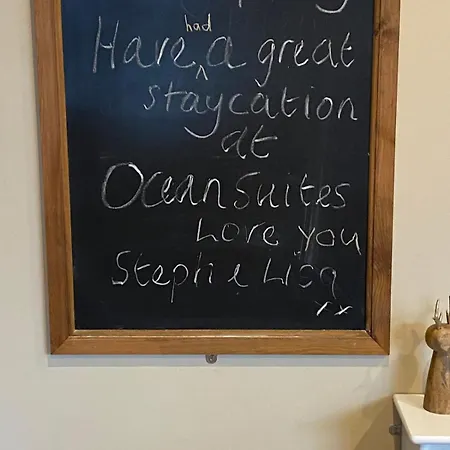 had
Have ^ a great
staycation
at
Ocean Suites
Love you
Stephie Lisa
xx